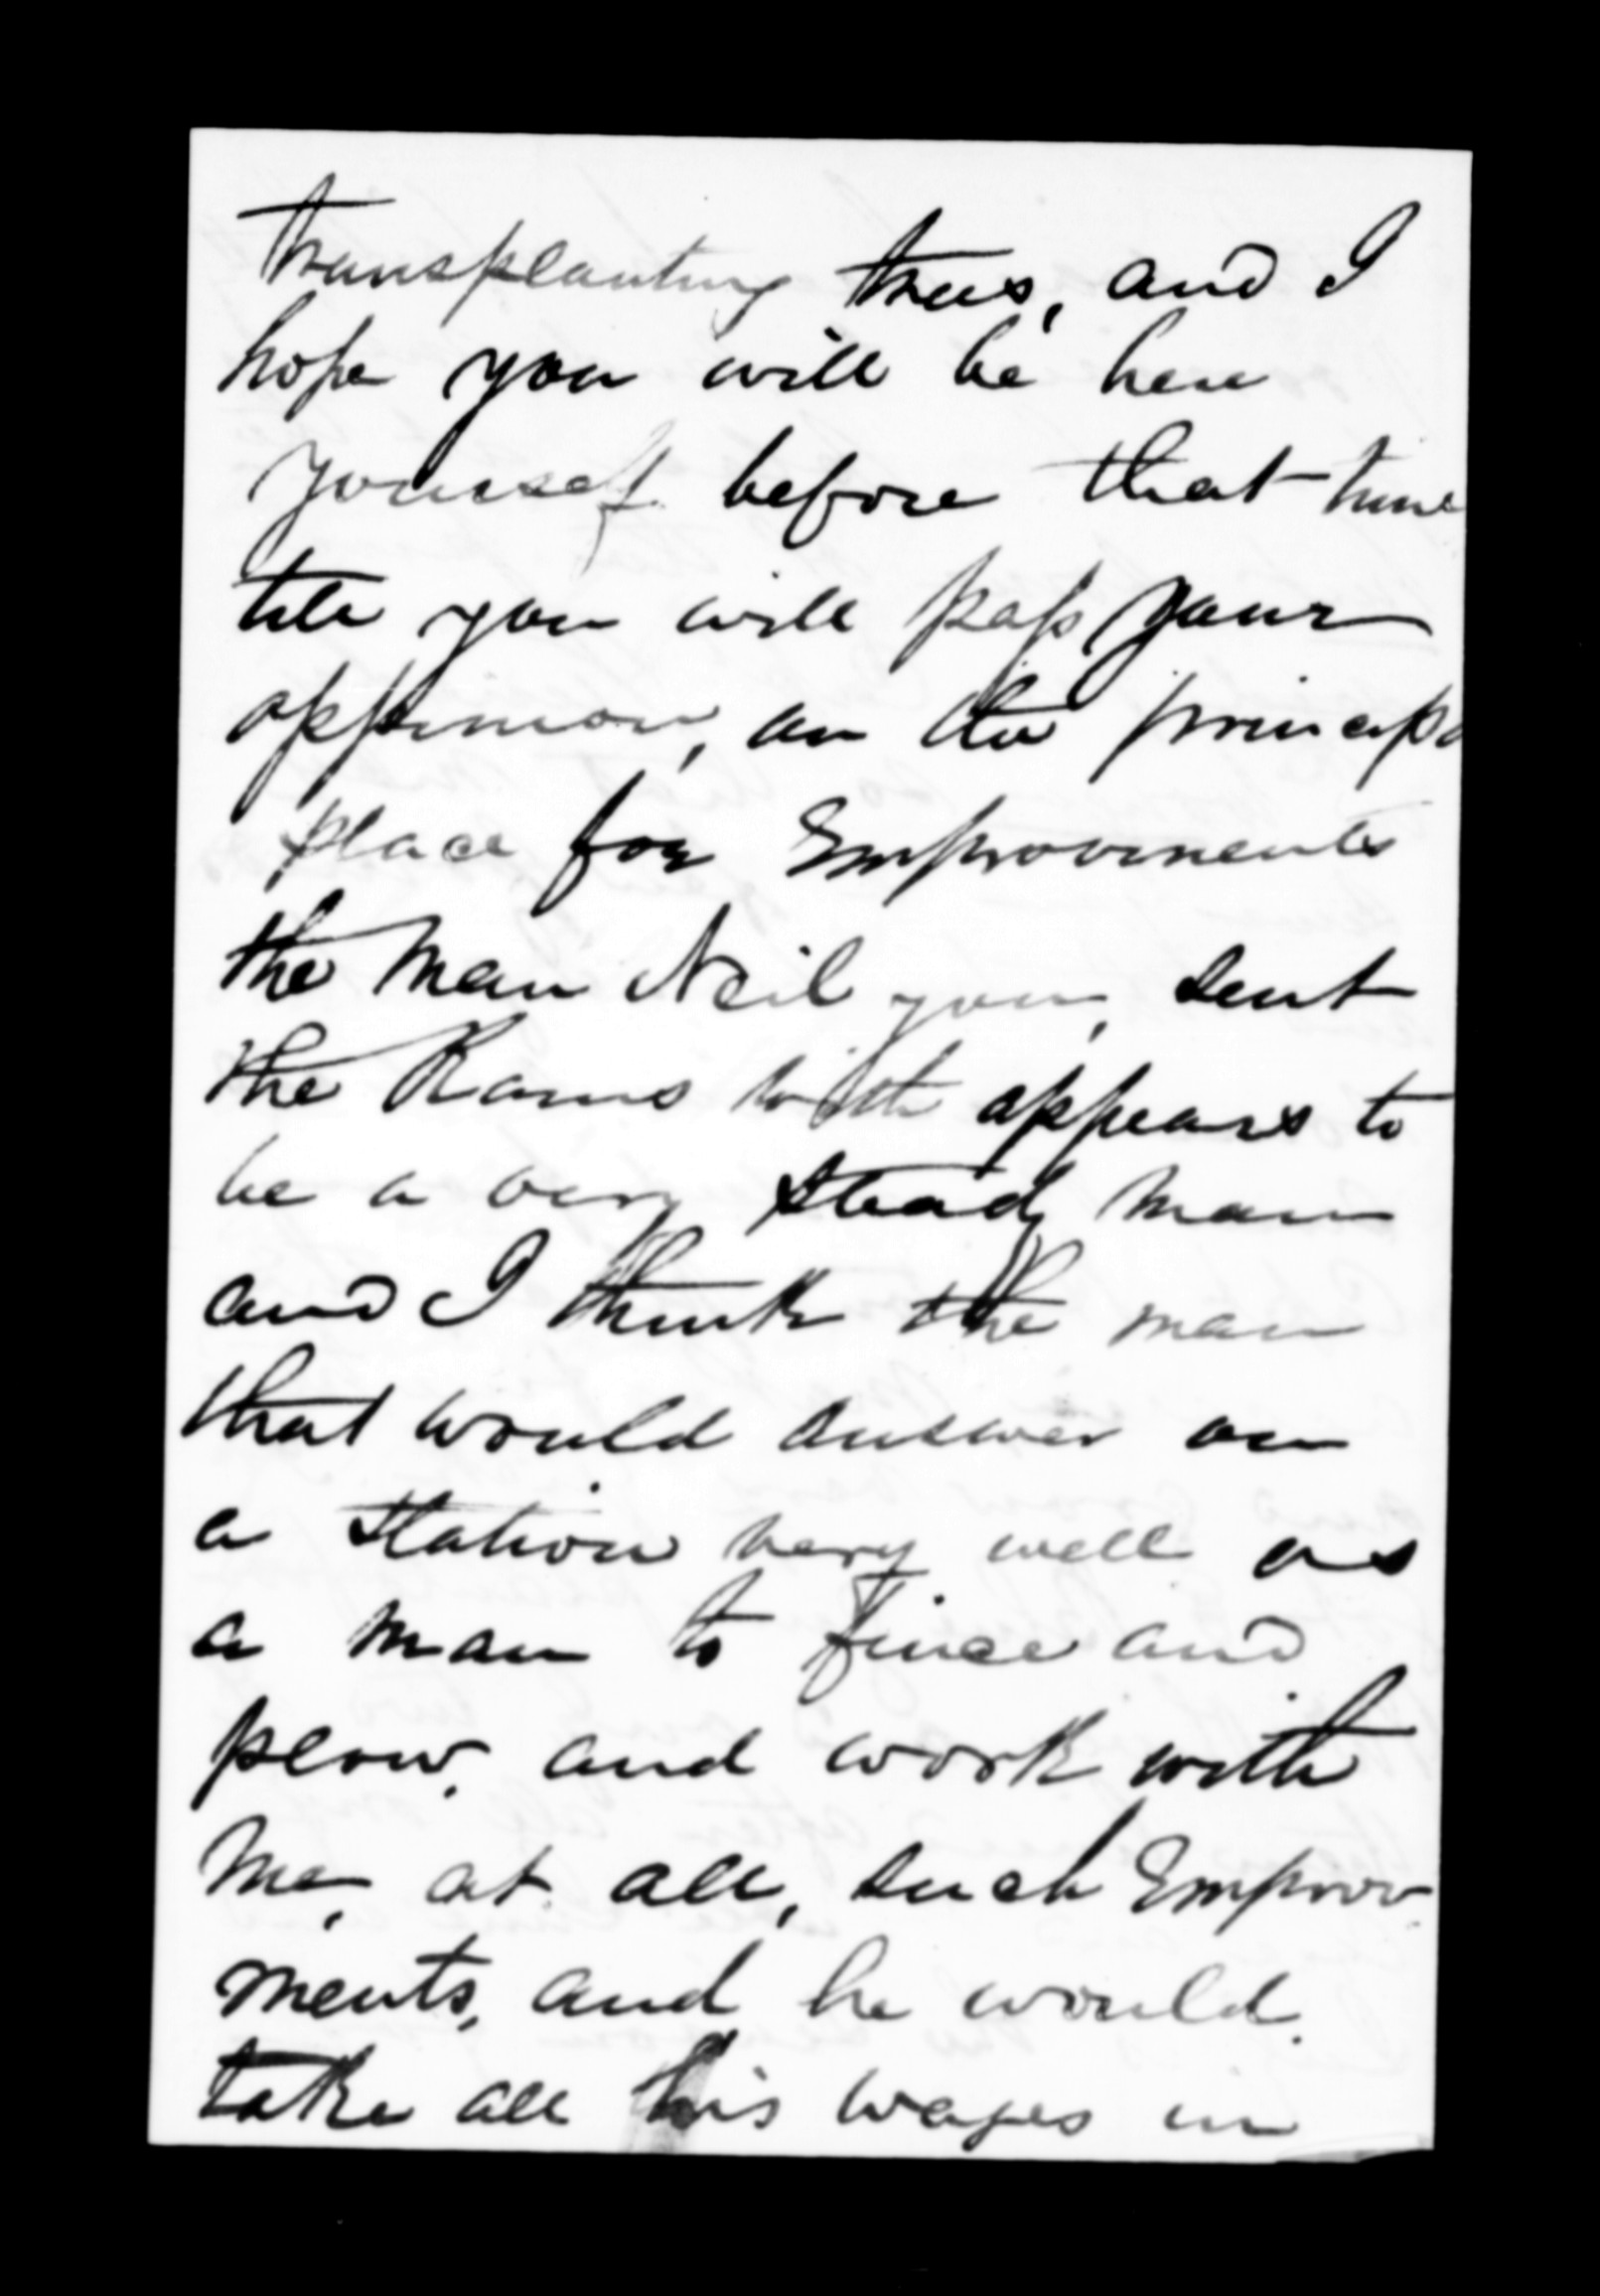 transplanting trees, and I
hope you will be here
yourself before that time
till you will pass your
oppinion, on the principa
place for Improvments
the man Neil you, sent
the Rams with appears to
be a very steady man
and I think the man
that would answer on
a station very well as
a man to fence and
plow, and work with
me, at all, such Improv-
ments, and he would
take all his wages in